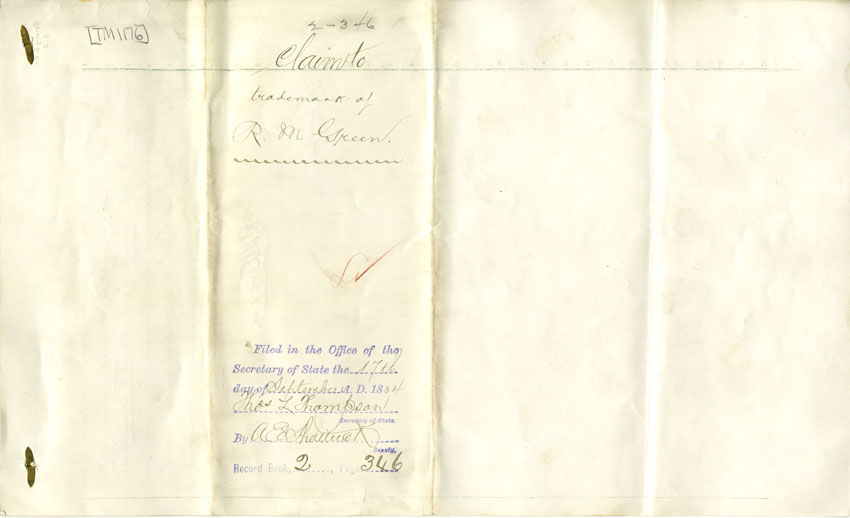 [TM1176]
2-346
Claim to
trademark of
R. M Green.
Filed in the Office of the
Secretary of State the 17th
day of September A. D. 1884
Thos L Thompson
Secretary of State.
By A E Shattuck
Deputy.
Record Book, 2 , Page 346